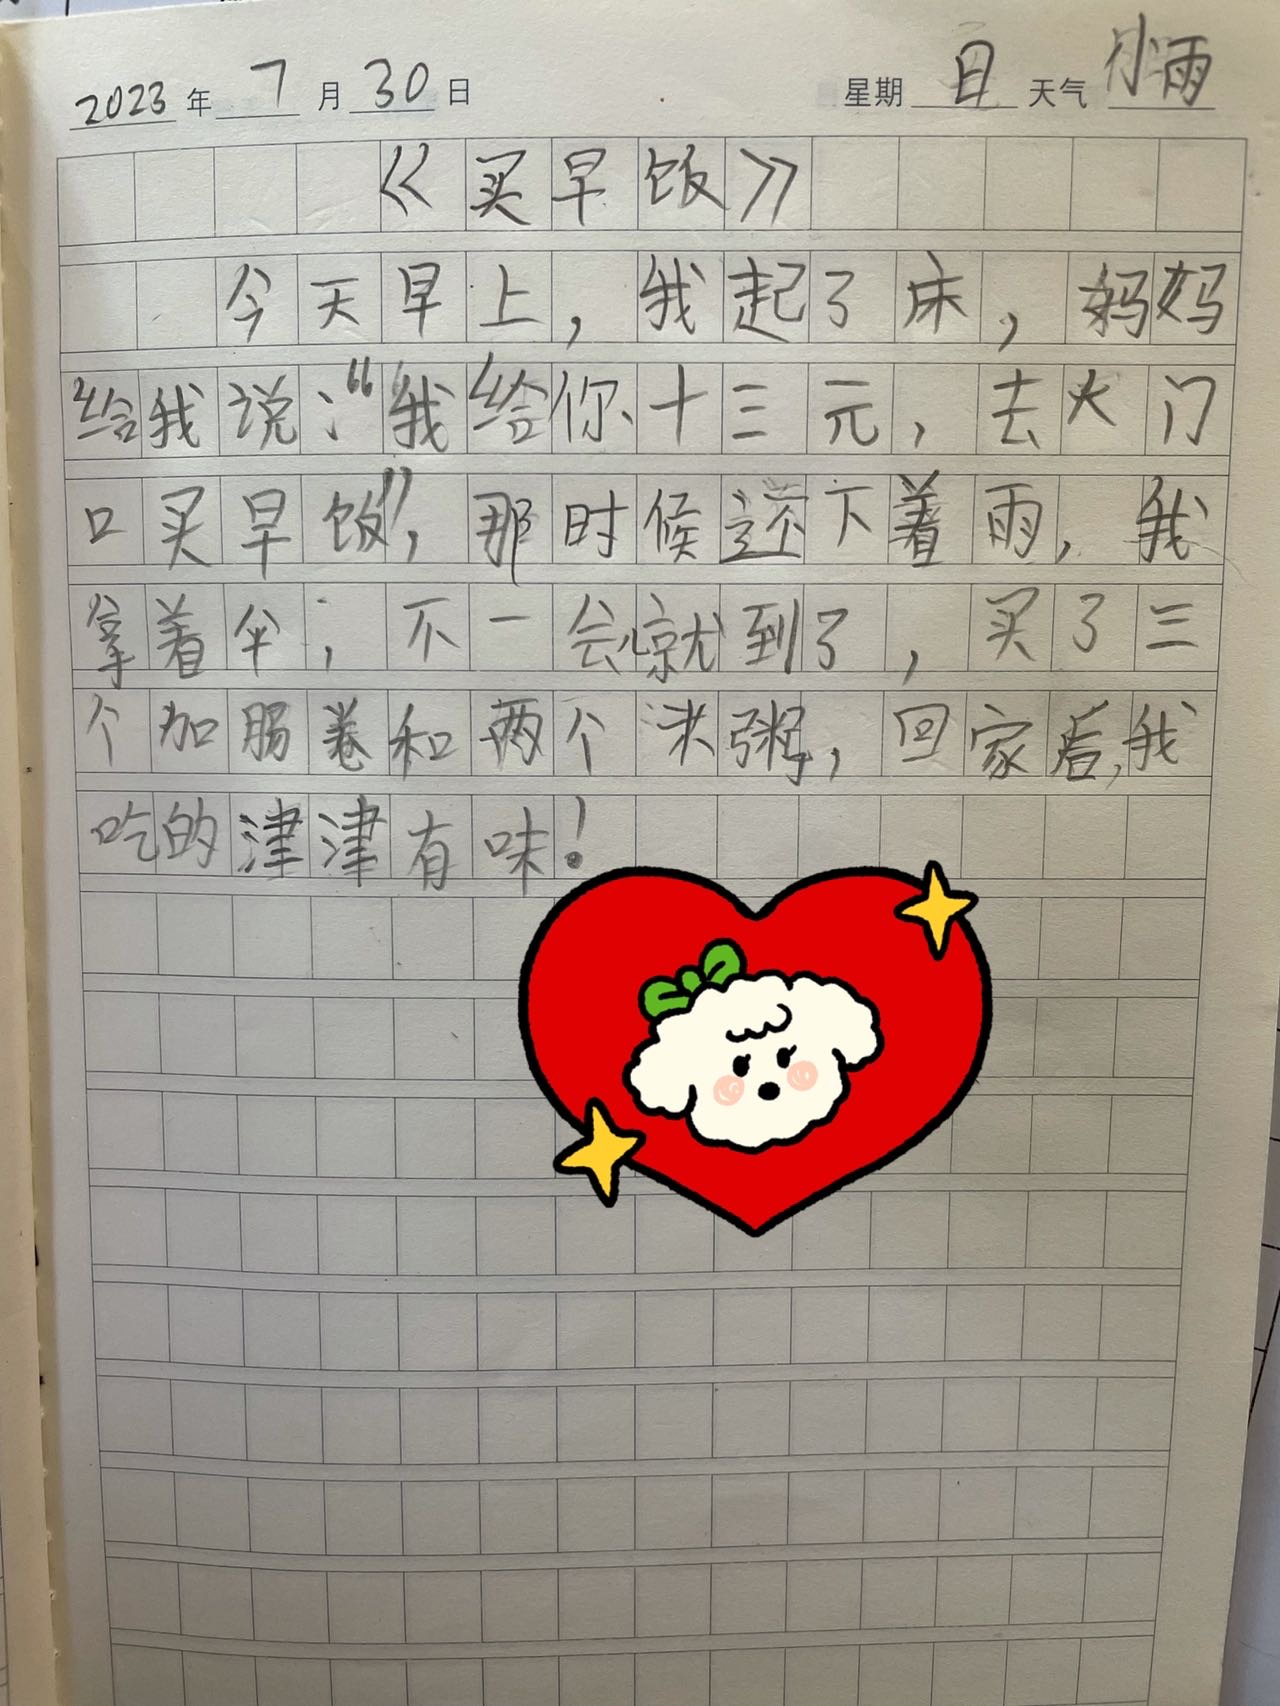 2023年7月30日 星期日 天气 小雨
《买早饭》
今天早上，我起了床，妈妈
给我说：“我给你十三元，去大门
口买早饭”，那时候还下着雨，我
拿着伞，不一会就到了，买了三
个加肠卷和两个米粥，回家后，我
吃的津津有味！